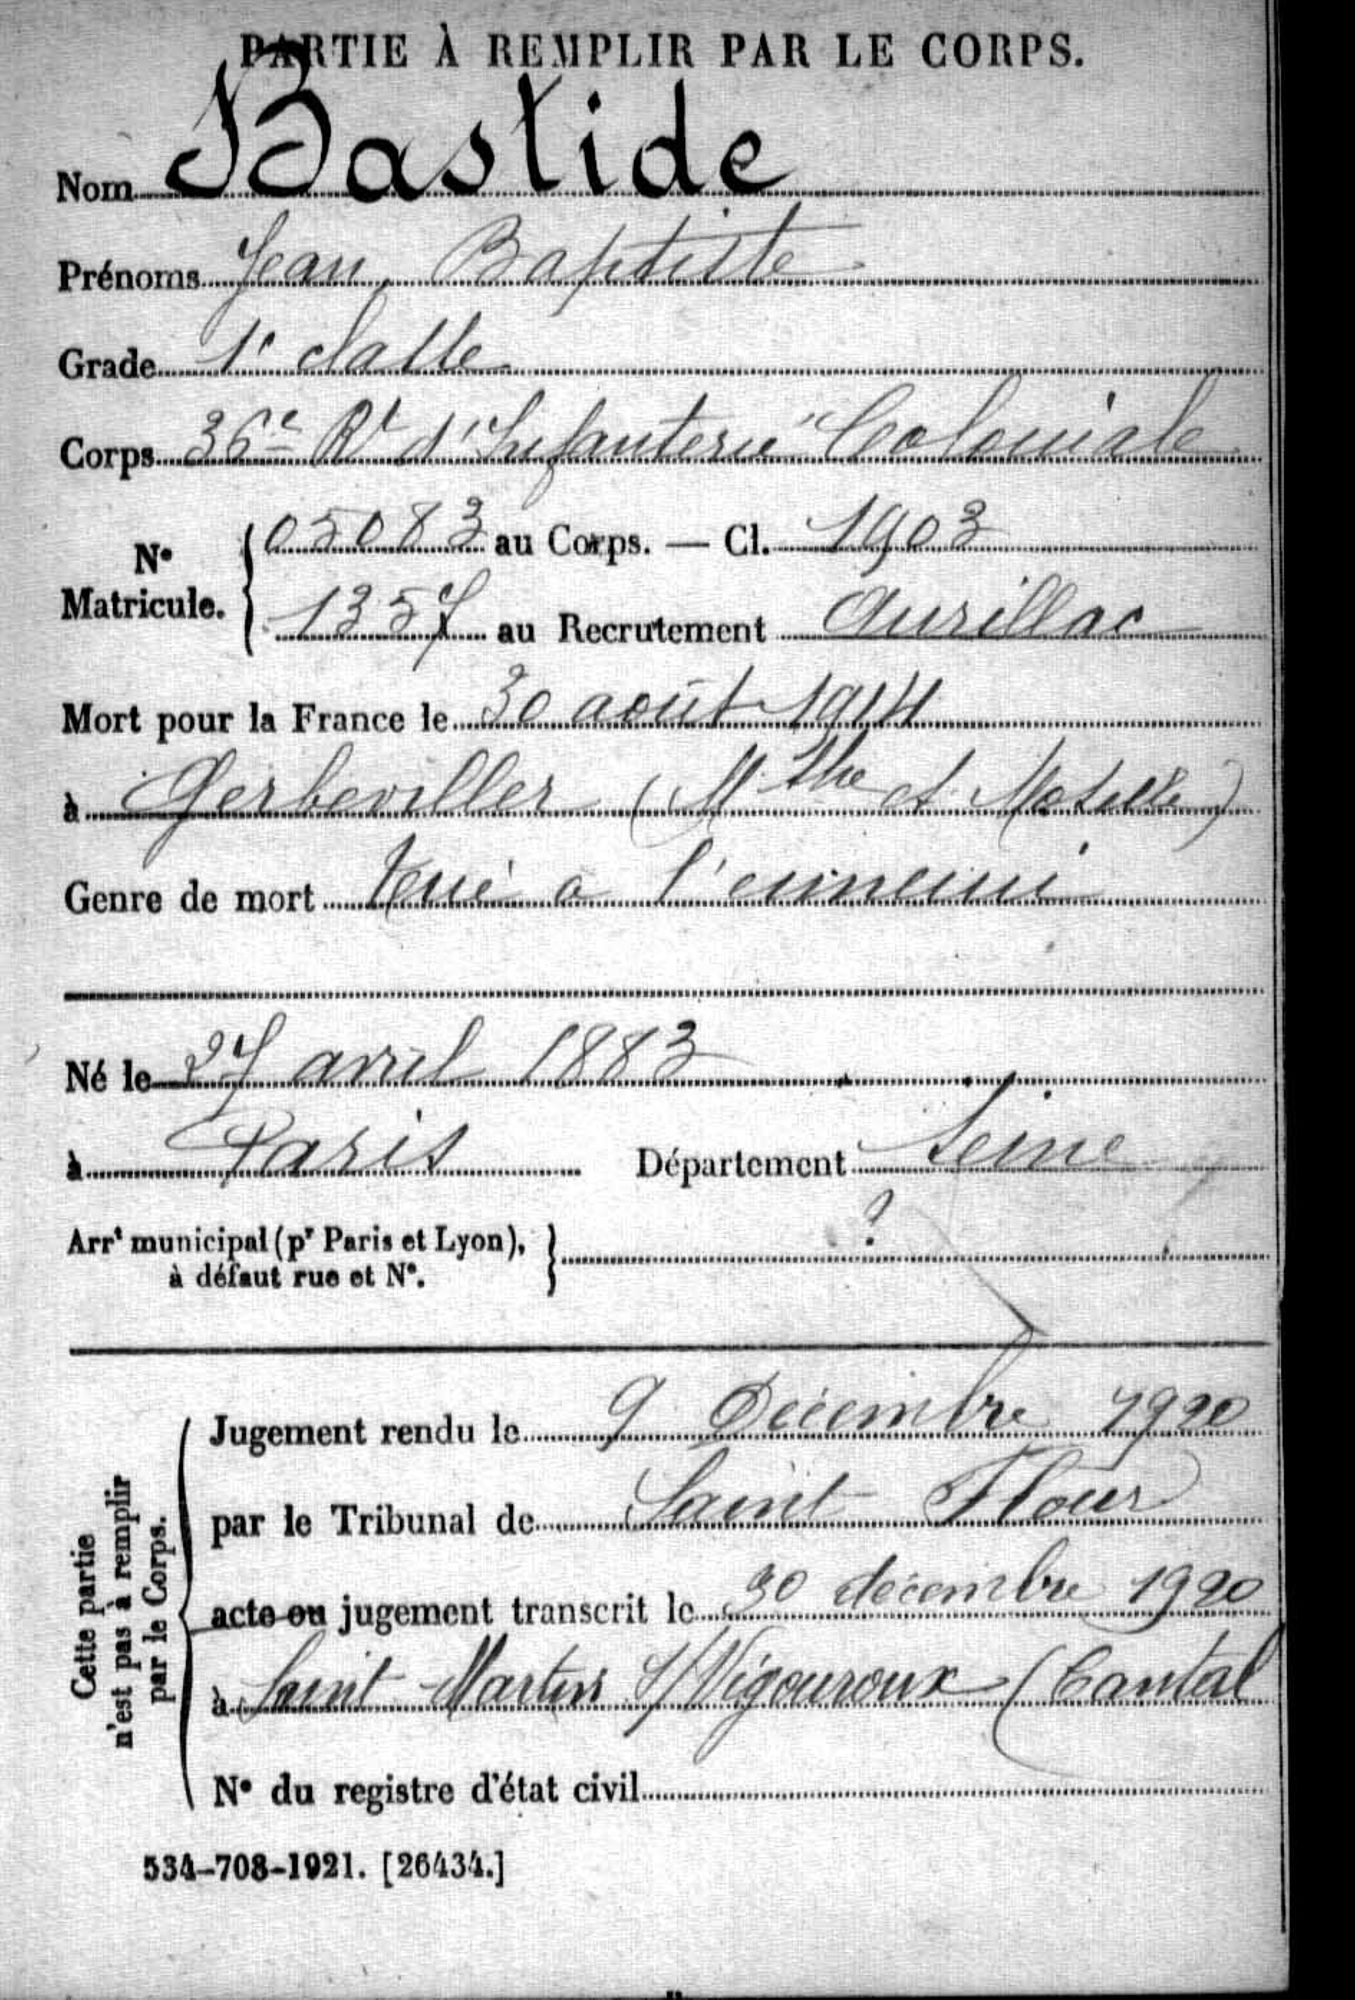 PARTIE À REMPLIR PAR LE CORPS.
Nom Bastide
Prénoms Jean, Baptiste
Grade 1e classe
Corps 36e Rt d'Infanterie Coloniale
No Matricule. { 05083 au Corps. — Cl. 1903
1357 au Recrutement Aurillac
Mort pour la France le 30 août 1914
à Gerbeviller (Mthe et Moselle)
Genre de mort tué a l'ennemi
Né le 27 avril 1883
à Paris Département Seine
Arrt municipal (pr Paris et Lyon), } ?
à défaut rue et No.
Cette partie
n'est pas à remplir
par le Corps.
Jugement rendu le 9 Décembre 1920
par le Tribunal de Saint Flour
acte ou jugement transcrit le 30 décembre 1920
à Saint Martin s/Vigouroux (Cantal
No du registre d'état civil
534-708-1921. [26434.]